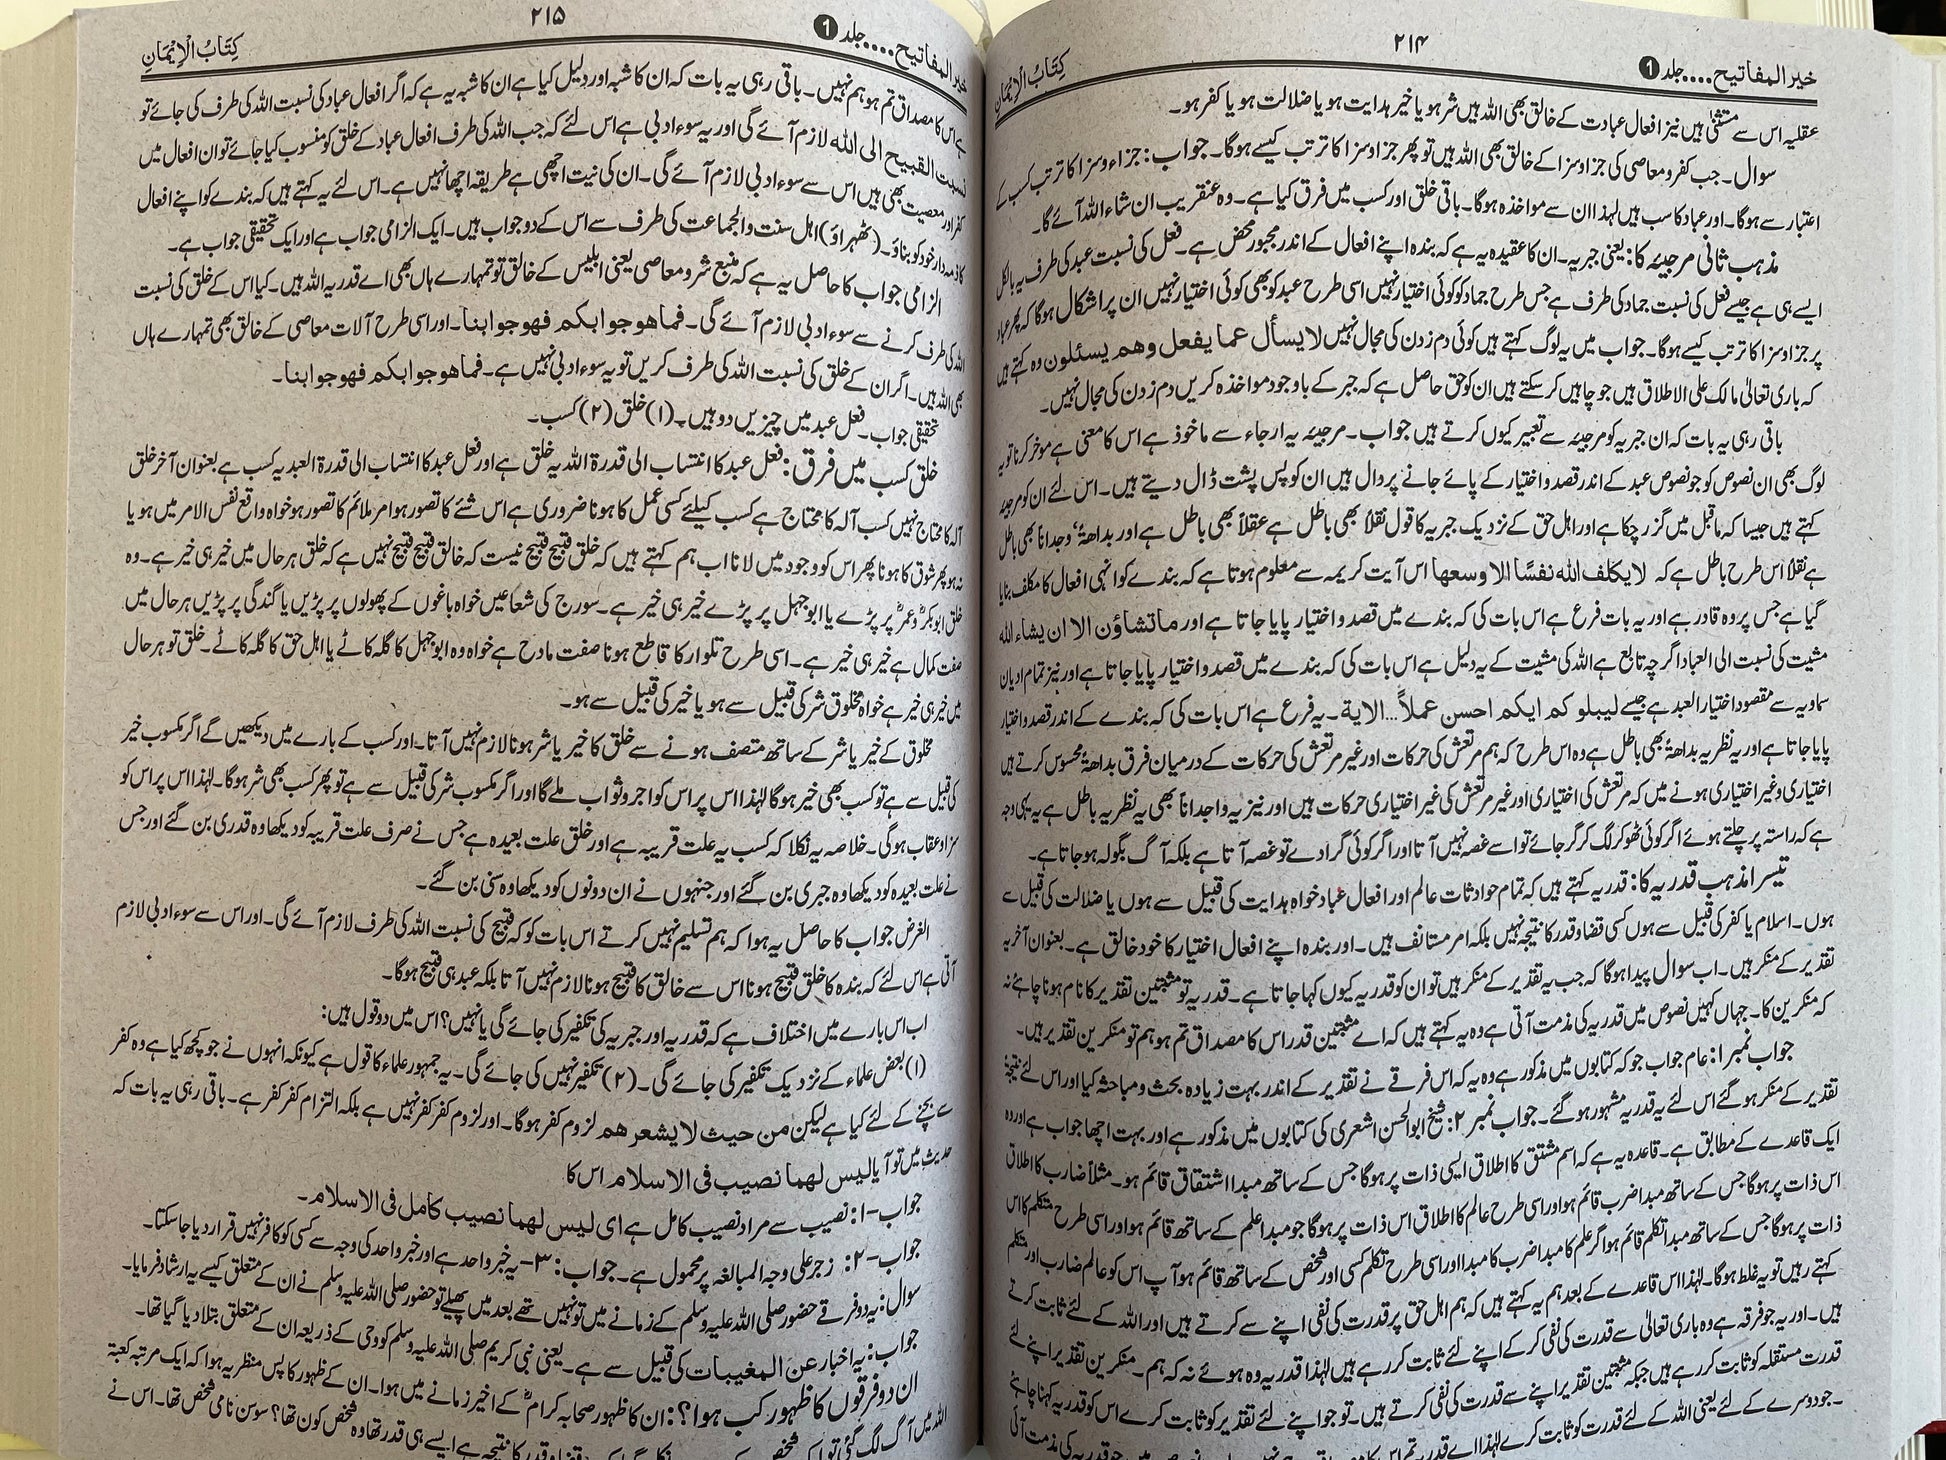 خیر المفاتیح....جلد 1
۲۱۴
کِتَابُ الْاِیْمَانِ
عقلیہ اس سے مستثنیٰ ہیں نیز افعال عبادت کے خالق بھی اللہ ہیں شر ہو یا خیر ہدایت ہو یا ضلالت ہو یا کفر ہو۔
سوال۔ جب کفر و معاصی کی جزا و سزا کے خالق بھی اللہ ہیں تو پھر جزا و سزا کا ترتب کیسے ہوگا۔ جواب: جزاء و سزا کا ترتب کسب کے
اعتبار سے ہوگا۔ اور عباد کاسب ہیں لہٰذا ان سے مواخذہ ہوگا۔ باقی خلق اور کسب میں فرق کیا ہے۔ وہ عنقریب ان شاء اللہ آئے گا۔
مذہب ثانی مرجیئہ کا: یعنی جبریہ۔ ان کا عقیدہ یہ ہے کہ بندہ اپنے افعال کے اندر مجبور محض ہے۔ فعل کی نسبت عبد کی طرف یہ بالکل
ایسے ہی ہے جیسے فعل کی نسبت جماد کی طرف ہے جس طرح جماد کو کوئی اختیار نہیں اسی طرح عبد کو بھی کوئی اختیار نہیں ان پر اشکال ہوگا کہ پھر عباد
پر جزا و سزا کا ترتب کیسے ہوگا۔ جواب میں یہ لوگ کہتے ہیں کوئی دم زدن کی مجال نہیں لا یسأل عما یفعل وھم یسئلون وہ کہتے ہیں
کہ باری تعالیٰ مالک علی الاطلاق ہیں جو چاہیں کر سکتے ہیں ان کو حق حاصل ہے کہ جبر کے باوجود مواخذہ کریں دم زدن کی مجال نہیں۔
باقی رہی یہ بات کہ ان جبریہ کو مرجیئہ سے تعبیر کیوں کرتے ہیں جواب۔ مرجیئہ یہ ارجاء سے ماخوذ ہے اس کا معنی ہے موخر کرنا تو یہ
لوگ بھی ان نصوص کو جو نصوص عبد کے اندر قصد و اختیار کے پائے جانے پر دال ہیں ان کو پس پشت ڈال دیتے ہیں۔ اس لئے ان کو مرجیئہ
کہتے ہیں جیسا کہ ماقبل میں گزر چکا ہے اور اہل حق کے نزدیک جبریہ کا قول نقلاً بھی باطل ہے عقلاً بھی باطل ہے اور بداھۃً، وجداناً بھی باطل
ہے نقلاً اس طرح باطل ہے کہ لایکلف اللہ نفسًا الا وسعھا اس آیت کریمہ سے معلوم ہوتا ہے کہ بندے کو انہی افعال کا مکلف بنایا
گیا ہے جس پر وہ قادر ہے اور یہ بات فرع ہے اس بات کی کہ بندے میں قصد و اختیار پایا جاتا ہے اور ماتشاؤن الا ان یشاء اللہ
مشیت کی نسبت الی العباد اگرچہ تابع ہے اللہ کی مشیت کے یہ دلیل ہے اس بات کی کہ بندے میں قصد و اختیار پایا جاتا ہے اور نیز تمام ادیان
سماویہ سے مقصود اختیار العبد ہے جیسے لیبلو کم ایکم احسن عملاً...الایة۔ یہ فرع ہے اس بات کی کہ بندے کے اندر قصد و اختیار
پایا جاتا ہے اور یہ نظریہ بداھۃً بھی باطل ہے وہ اس طرح کہ ہم مرتعش کی حرکات اور غیر مرتعش کی حرکات کے درمیان فرق بداھۃً محسوس کرتے ہیں
اختیاری و غیر اختیاری ہونے میں کہ مرتعش کی اختیاری اور غیر مرتعش کی غیر اختیاری حرکات ہیں اور نیز یہ واجداناً بھی یہ نظریہ باطل ہے یہ یہی وجہ
ہے کہ راستہ پر چلتے ہوئے اگر کوئی ٹھوکر لگ کر گر جائے تو اسے غصہ نہیں آتا اور اگر کوئی گرا دے تو غصہ آتا ہے بلکہ آگ بگولہ ہو جاتا ہے۔
تیسرا مذہب قدریہ کا: قدریہ کہتے ہیں کہ تمام حوادثات عالم اور افعال عباد خواہ ہدایت کی قبیل سے ہوں یا ضلالت کی قبیل سے
ہوں۔ اسلام یا کفر کی قبیل سے ہوں کسی قضاء و قدر کا نتیجہ نہیں بلکہ امر مستانف ہیں۔ اور بندہ اپنے افعال اختیار کا خود خالق ہے۔ بعنوان آخر یہ
تقدیر کے منکر ہیں۔ اب سوال پیدا ہوگا کہ جب یہ تقدیر کے منکر ہیں تو ان کو قدریہ کیوں کہا جاتا ہے۔ قدریہ تو مثبتین تقدیر کا نام ہونا چاہئے نہ
کہ منکرین کا۔ جہاں کہیں نصوص میں قدریہ کی مذمت آتی ہے وہ یہ کہتے ہیں کہ اے مثبتین قدر اس کا مصداق تم ہو ہم تو منکرین تقدیر ہیں۔
جواب نمبر ۱: عام جواب جو کہ کتابوں میں مذکور ہے وہ یہ کہ اس فرقے نے تقدیر کے اندر بہت زیادہ بحث و مباحثہ کیا اور اس لئے نتیجۃً
تقدیر کے منکر ہو گئے اس لئے یہ قدریہ مشہور ہو گئے۔ جواب نمبر ۲: شیخ ابوالحسن اشعری کی کتابوں میں مذکور ہے اور بہت اچھا جواب ہے اور وہ
ایک قاعدے کے مطابق ہے۔ قاعدہ یہ ہے کہ اسم مشتق کا اطلاق ایسی ذات پر ہوگا جس کے ساتھ مبدا اشتقاق قائم ہو۔ مثلاً ضارب کا اطلاق
اس ذات پر ہوگا جس کے ساتھ مبدا ضرب قائم ہو اور اسی طرح عالم کا اطلاق اس ذات پر ہوگا جو مبدا علم کے ساتھ قائم ہو اور اسی طرح متکلم کا اس
ذات پر ہوگا جس کے ساتھ مبدا تکلم قائم ہو اگر علم کا مبدا ضرب کا مبدا اور اسی طرح تکلم کسی اور شخص کے ساتھ قائم ہو آپ اس کو عالم ضارب اور متکلم
کہتے رہیں تو یہ غلط ہوگا۔ لہٰذا اس قاعدے کے بعد ہم یہ کہتے ہیں کہ ہم اہل حق پر قدرت کی نفی اپنے سے کرتے ہیں اور اللہ کے لئے ثابت کرتے
ہیں۔ اور یہ جو فرقہ ہے وہ باری تعالیٰ سے قدرت کی نفی کر کے اپنے لئے ثابت کر رہے ہیں لہٰذا قدریہ وہ ہوئے نہ کہ ہم۔ منکرین تقدیر اپنے لئے
قدرت مستقلہ کو ثابت کر رہے ہیں جبکہ مثبتین تقدیر اپنے سے قدرت کی نفی کرتے ہیں۔ تو جو اپنے لئے تقدیر کو ثابت کرے اس کو قدریہ کہنا چاہئے
۔ جو دوسرے کے لئے یعنی اللہ کے لئے قدرت کو ثابت کرے لہٰذا اے قدریہ تم اس کا
خیر المفاتیح....جلد 1
۲۱۵
کِتَابُ الْاِیْمَانِ
ہے اس کا مصداق تم ہو ہم نہیں۔ باقی رہی یہ بات کہ ان کا شبہ اور دلیل کیا ہے ان کا شبہ یہ ہے کہ اگر افعال عباد کی نسبت اللہ کی طرف کی جائے تو
نسبت القبیح الی اللہ لازم آئے گی اور یہ سوء ادبی ہے اس لئے کہ جب اللہ کی طرف افعال عباد کے خلق کو منسوب کیا جائے تو ان افعال میں
کفر اور معصیت بھی ہیں اس سے سوء ادبی لازم آئے گی۔ ان کی نیت اچھی ہے طریقہ اچھا نہیں ہے۔ اس لئے یہ کہتے ہیں کہ بندے کو اپنے افعال
کا ذمہ دار خود کو بناؤ۔ (ٹھہراؤ) اہل سنت والجماعت کی طرف سے اس کے دو جواب ہیں۔ ایک الزامی جواب ہے اور ایک تحقیقی جواب ہے۔
الزامی جواب کا حاصل یہ ہے کہ منبع شر و معاصی یعنی ابلیس کے خالق تو تمہارے ہاں بھی اے قدریہ اللہ ہیں۔ کیا اس کے خلق کی نسبت
اللہ کی طرف کرنے سے سوء ادبی لازم آئے گی۔ فما ھو جوابکم فھو جوابنا۔ اور اسی طرح آلات معاصی کے خالق بھی تمہارے ہاں
بھی اللہ ہیں۔ اگر ان کے خلق کی نسبت اللہ کی طرف کریں تو یہ سوء ادبی نہیں ہے۔ فما ھو جوابکم فھو جوابنا۔
تحقیقی جواب۔ فعل عبد میں چیزیں دو ہیں۔ (۱) خلق (۲) کسب۔
خلق کسب میں فرق: فعل عبد کا انتساب الی قدرۃ اللہ یہ خلق ہے اور فعل عبد کا انتساب الی قدرۃ العبد یہ کسب ہے بعنوان آخر خلق
آلہ کا محتاج نہیں کسب آلہ کا محتاج ہے کسب کیلئے کسی عمل کا ہونا ضروری ہے اس شئے کا تصور ہو امر ملائم کا تصور ہو خواہ واقع نفس الامر میں ہو یا
نہ ہو پھر شوق کا ہونا پھر اس کو وجود میں لانا اب ہم کہتے ہیں کہ خلق قبیح قبیح نیست کہ خالق قبیح قبیح نہیں ہے کہ خلق ہر حال میں خیر ہی خیر ہے۔ وہ
خلق ابوبکرؓ و عمرؓ پر پڑے یا ابوجہل پر پڑے خیر ہی خیر ہے۔ سورج کی شعاعیں خواہ باغوں کے پھولوں پر پڑیں یا گندگی پر پڑیں ہر حال میں
صفت کمال ہے خیر ہی خیر ہے۔ اسی طرح تلوار کا قاطع ہونا صفت مادح ہے خواہ وہ ابوجہل کا گلہ کاٹے یا اہل حق کا گلہ کاٹے۔ خلق تو ہر حال
میں خیر ہی خیر ہے خواہ مخلوق شر کی قبیل سے ہو یا خیر کی قبیل سے ہو۔
مخلوق کے خیر یا شر کے ساتھ متصف ہونے سے خلق کا خیر یا شر ہونا لازم نہیں آتا۔ اور کسب کے بارے میں دیکھیں گے اگر مکسوب خیر
کی قبیل سے ہے تو کسب بھی خیر ہوگا لہٰذا اس پر اس کو اجر و ثواب ملے گا اور اگر مکسوب شر کی قبیل سے ہے تو پھر کسب بھی شر ہوگا۔ لہٰذا اس پر اس کو
سزا و عقاب ہوگی۔ خلاصہ یہ نکلا کہ کسب یہ علت قریبہ ہے اور خلق علت بعیدہ ہے جس نے صرف علت قریبہ کو دیکھا وہ قدری بن گئے اور جس
نے علت بعیدہ کو دیکھا وہ جبری بن گئے اور جنہوں نے ان دونوں کو دیکھا وہ سنی بن گئے۔
الغرض جواب کا حاصل یہ ہوا کہ ہم تسلیم نہیں کرتے اس بات کو کہ قبیح کی نسبت اللہ کی طرف لازم آئے گی۔ اور اس سے سوء ادبی لازم
آتی ہے اس لئے کہ بندہ کا خلق قبیح ہونا اس سے خالق کا قبیح ہونا لازم نہیں آتا بلکہ عبد ہی قبیح ہوگا۔
اب اس بارے میں اختلاف ہے کہ قدریہ اور جبریہ کی تکفیر کی جائے گی یا نہیں؟ اس میں دو قول ہیں:
(۱) بعض علماء کے نزدیک تکفیر کی جائے گی۔ (۲) تکفیر نہیں کی جائے گی۔ یہ جمہور علماء کا قول ہے کیونکہ انہوں نے جو کچھ کیا ہے وہ کفر
سے بچنے کے لئے کیا ہے لیکن من حیث لا یشعر ھم لزوم کفر ہوگا۔ اور لزوم کفر کفر نہیں ہے بلکہ التزام کفر کفر ہے۔ باقی رہی یہ بات کہ
حدیث میں تو آیا لیس لھما نصیب فی الاسلام اس کا
جواب-۱: نصیب سے مراد نصیب کامل ہے ای لیس لھما نصیب کامل فی الاسلام۔
جواب-۲: زجر علی وجہ المبالغہ پر محمول ہے۔ جواب: ۳- یہ خبر واحد ہے اور خبر واحد کی وجہ سے کسی کو کافر نہیں قرار دیا جا سکتا۔
سوال: یہ دو فرقے حضور صلی اللہ علیہ وسلم کے زمانے میں تو نہیں تھے بعد میں پھیلے تو حضور صلی اللہ علیہ وسلم نے ان کے متعلق کیسے یہ ارشاد فرمایا۔
جواب: یہ اخبار عن المغیبات کی قبیل سے ہے۔ یعنی نبی کریم صلی اللہ علیہ وسلم کو وحی کے ذریعہ ان کے متعلق بتلا دیا گیا تھا۔
ان دو فرقوں کا ظہور کب ہوا؟: ان کا ظہور صحابہ کرامؓ کے اخیر زمانے میں ہوا۔ ان کے ظہور کا پس منظر یہ ہوا کہ ایک مرتبہ کعبۃ
اللہ میں آگ لگ گئی تو ایک شخص نے کہا کہ یہ قضاء و قدر کا نتیجہ ہے ایسے ہی قدر تھا وہ شخص کون تھا؟ سوسن نامی شخص تھا۔ اس نے